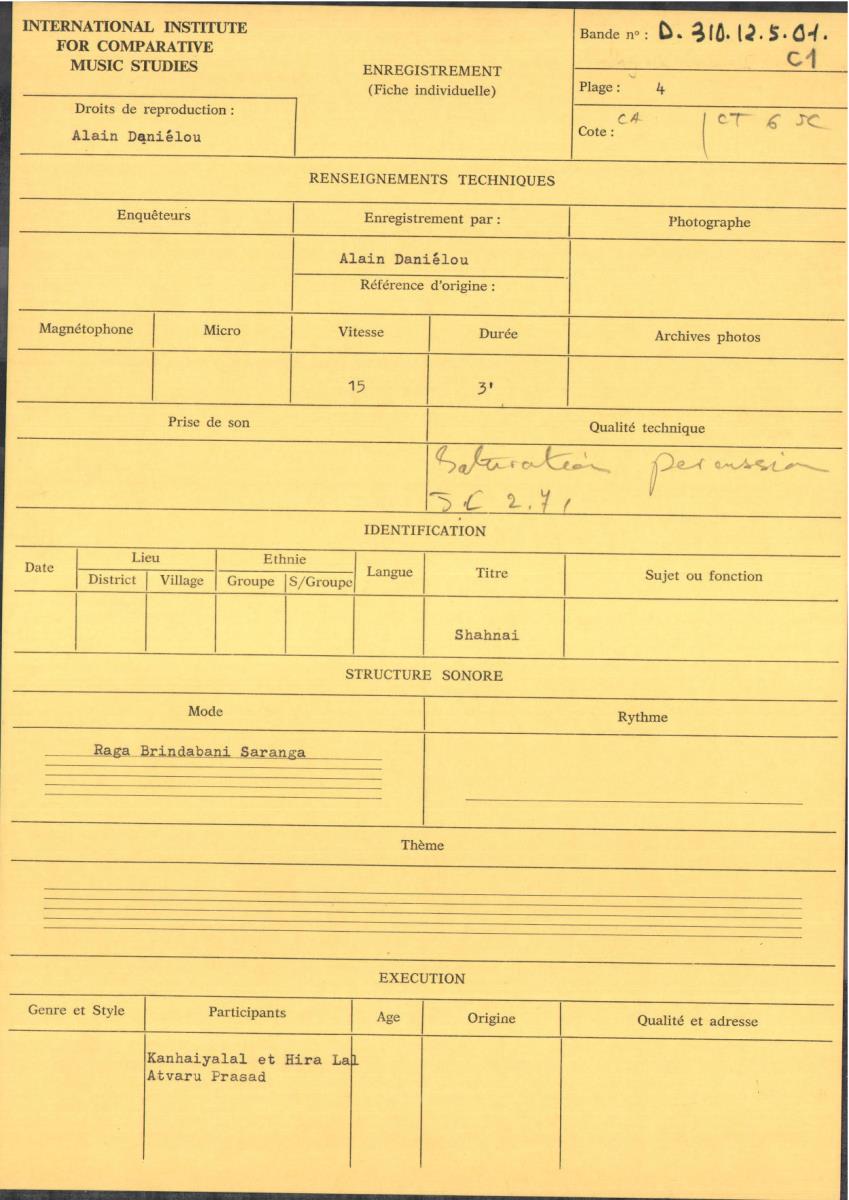 INTERNATIONAL INSTITUTE
FOR COMPARATIVE
MUSIC STUDIES
Droits de reproduction :
Alain Daniélou
ENREGISTREMENT
(Fiche individuelle)
Bande nº : D. 310.12.5.01.
C1
Plage : 4
Cote : CA CT 6 JC
RENSEIGNEMENTS TECHNIQUES
Enquêteurs Enregistrement par : Photographe
Alain Daniélou
Référence d'origine :
Magnétophone Micro Vitesse Durée Archives photos
15 3'
Prise de son Qualité technique
Saturation percussion
J.C 2.71
IDENTIFICATION
Date Lieu Ethnie Langue Titre Sujet ou fonction
District Village Groupe S/Groupe
Shahnai
STRUCTURE SONORE
Mode Rythme
Raga Brindabani Saranga
Thème
EXECUTION
Genre et Style Participants Age Origine Qualité et adresse
Kanhaiyalal et Hira Lal
Atvaru Prasad